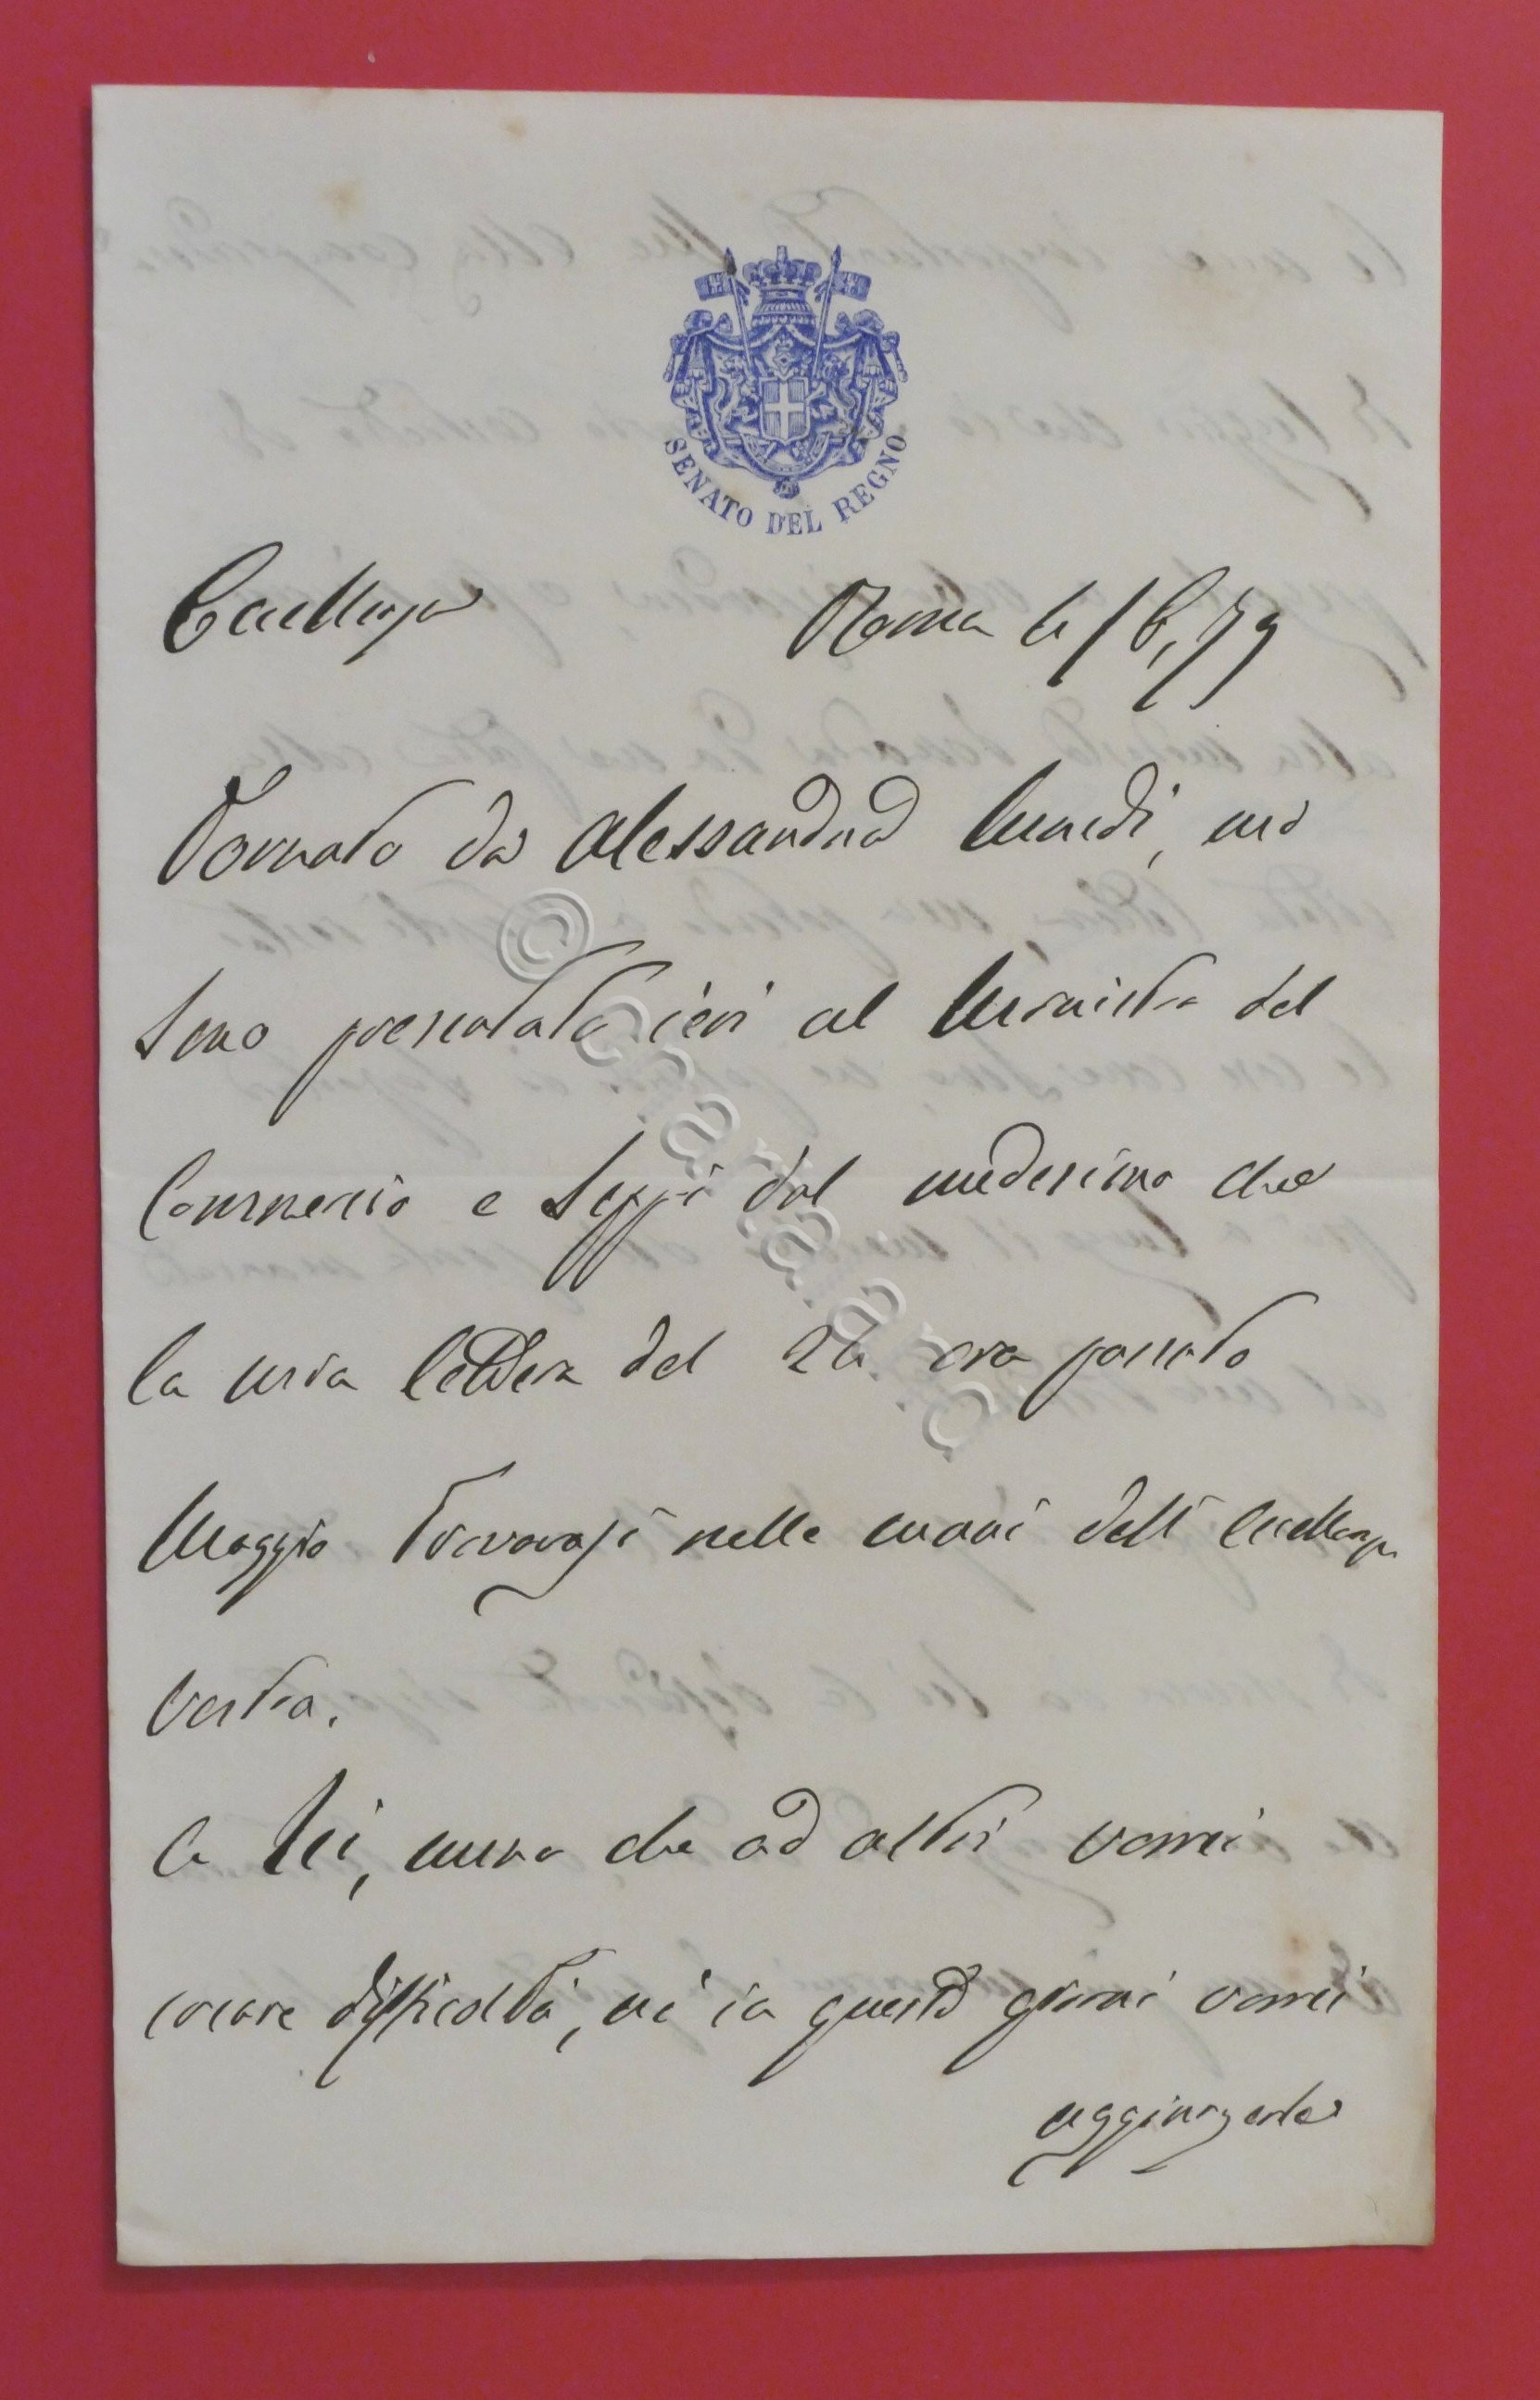 SENATO DEL REGNO
Eccellenza
Roma 6/6,79
Tornato da Alessandria lunedì, mi
sono presentato ieri al Ministro del
Commercio e seppi dal medesimo che
la mia lettera del 26 ora passato
Maggio trovavasi nelle mani dell'Eccellenza
Vostra.
A Lei, meno che ad altri vorrei
creare difficoltà, nè in questi giorni vorrei
aggiungerle
© Charta.an.c.